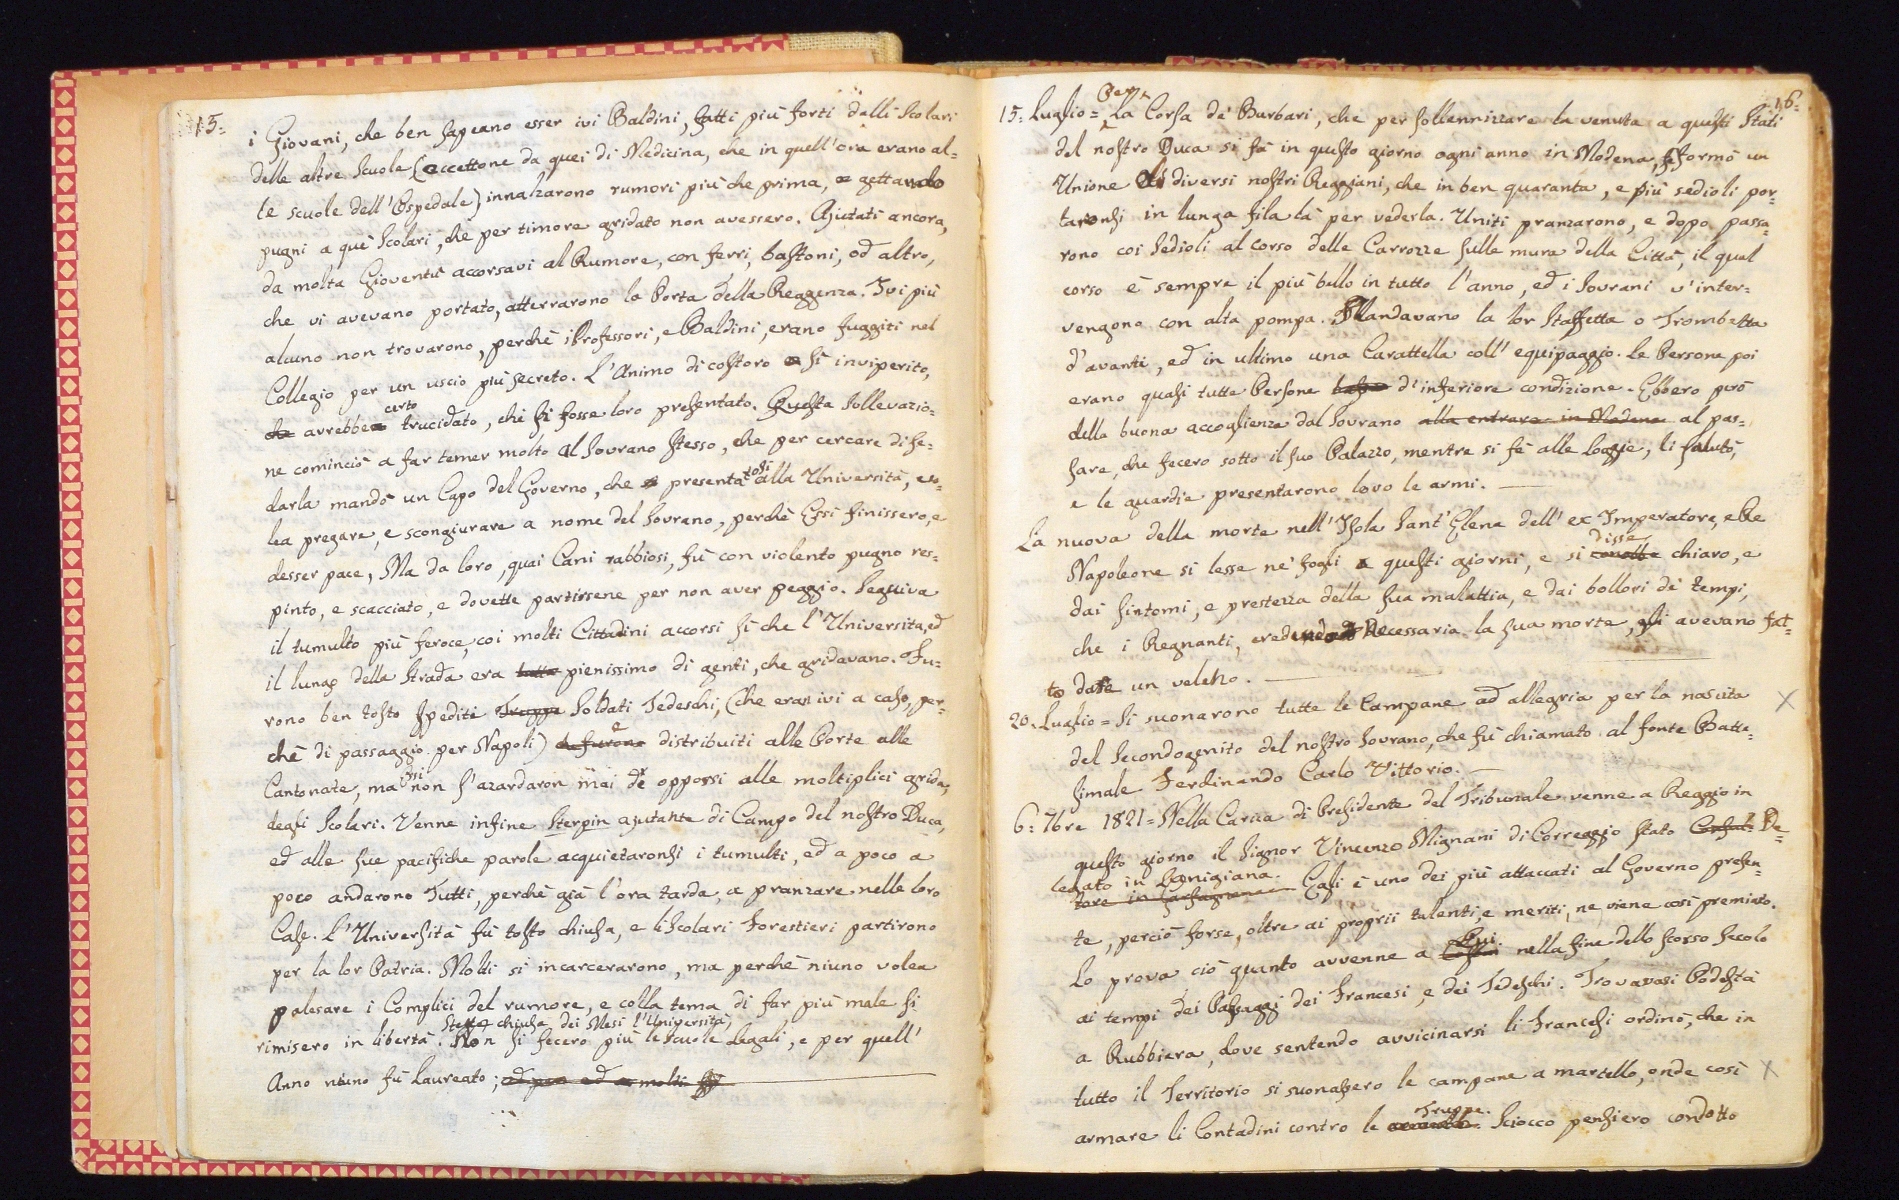 15=
i Giovani, che ben sapeano esser ivi Baldini, fatti più forti delli Scolari
delle altre Scuole (eccettone da quei di Medicina, che in quell'ora erano al=
te scuole dell'Ospedale) innalzarono rumori più che prima, e gettando
pugni a què Scolari, che per timore gridato non avessero. Ajutati ancora,
da molta Gioventù accorsavi al Rumore, con ferri, bastoni, od altro,
che vi avevano portato, atterrarono la Porta della Reggenza. Ivi più
alcuno non trovarono, perchè i Professori, e Baldini, erano fuggiti nel
Collegio per un uscio più secreto. L'Animo di costoro si inviperito,
che avrebbe certo trucidato, chi si fosse loro presentato. Questa Sollevazio=
ne cominciò a far temer molto al Sovrano stesso, che per cercare di se=
darla mandò un Capo del Governo, che presentatosi alla Università, vo=
lea pregare, e scongiurare a nome del Sovrano, perchè Essi finissero, e
desser pace, Ma da loro, quai Cani rabbiosi, fù con violento pugno res=
pinto, e scacciato, e dovette partirsene per non aver peggio. Seguiva
il tumulto più feroce, coi molti Cittadini accorsi sì che l'Università, ed
il lungo della Strada era tutta pienissimo di genti, che gridavano. Fu=
rono ben tosto spediti Truppe Soldati Tedeschi, (che eran ivi a caso, per=
chè di passaggio per Napoli) e furono distribuiti alle Porte alle
Cantonate, ma essi non s'azardaron mai di opporsi alle moltiplici grida,
degli Scolari. Venne infine Sterpin ajutante di Campo del nostro Duca,
ed alle sue pacifiche parole acquietaronsi i tumulti, ed a poco a
poco andarono Tutti, perchè già l'ora tarda, a pranzare nelle loro
Case. L'Università fù tosto chiusa, e li Scolari Forestieri partirono
per la lor Patria. Molti si incarcerarono, ma perchè niuno volea
palesare i Complici del rumore, e colla tema di far più male si
rimisero in libertà. Stette chiusa dei Mesi l'Università, Non si fecero più le Scuole Legali, e per quell'
Anno niuno fù Laureato; ed per ed a molti
16=
15= Luglio = Per La Corsa de' Barbari, che per sollennizzare la venuta a questi Stati
del nostro Duca si fà in questo giorno ogni anno in Modena, si formò un
Unione di diversi nostri Reggiani, che in ben quaranta, e più sedioli por=
taronsi in lunga fila là per vederla. Uniti pranzarono, e dopo passa=
rono coi Sedioli al corso delle Carrozze sulle mura della Città, il qual
corso è sempre il più bello in tutto l'anno, ed i Sovrani v'inter=
vengono con alta pompa. Mandavano la lor Staffetta o Trombetta
d'avanti, ed in ultimo una Carattella coll'equipaggio. Le Persone poi
erano quasi tutte Persone d'inferiore condizione. Ebbero però
della buona accoglienza dal Sovrano alla entrare in Modena al pas=
sare, che fecero sotto il suo Palazzo, mentre si fè alle Loggie, li salutò,
e le guardie presentarono loro le armi.
La nuova della morte nell'Isola Sant'Elena dell'ex Imperatore, e Re
Napoleone si lesse ne' fogli questi giorni, e si disse conobbe chiaro, e
dai sintomi, e prestezza della sua malattia, e dai bollori de tempi,
che i Regnanti, credendo Necessaria la sua morte, gli avevano fat=
to dare un veleno.
20. Luglio = Si suonarono tutte le Campane ad allegria per la nascita
del Secondogenito del nostro Sovrano, che fù chiamato al fonte Batte=
simale Ferdinando Carlo Vittorio.
6= 7bre 1821 = Nella Carica di Presidente del Tribunale venne a Reggio in
questo giorno il Signor Vincenzo Mignani di Correggio stato De=
legato in Lunigiana. tore in Garfagnana Egli è uno dei più attaccati al Governo presen=
te, perciò forse, oltre ai proprii talenti, e meriti, ne viene così premiato.
Lo prova ciò quanto avvenne a nella fine dello scorso Secolo
ai tempi dei Passaggi dei Francesi, e dei Tedeschi. Trovavasi Podestà
a Rubbiera, dove sentendo avvicinarsi li Francesi ordinò, che in
tutto il Territorio si suonassero le campane a martello, onde così
armare li Contadini contro le Truppe. Sciocco pensiero condotto